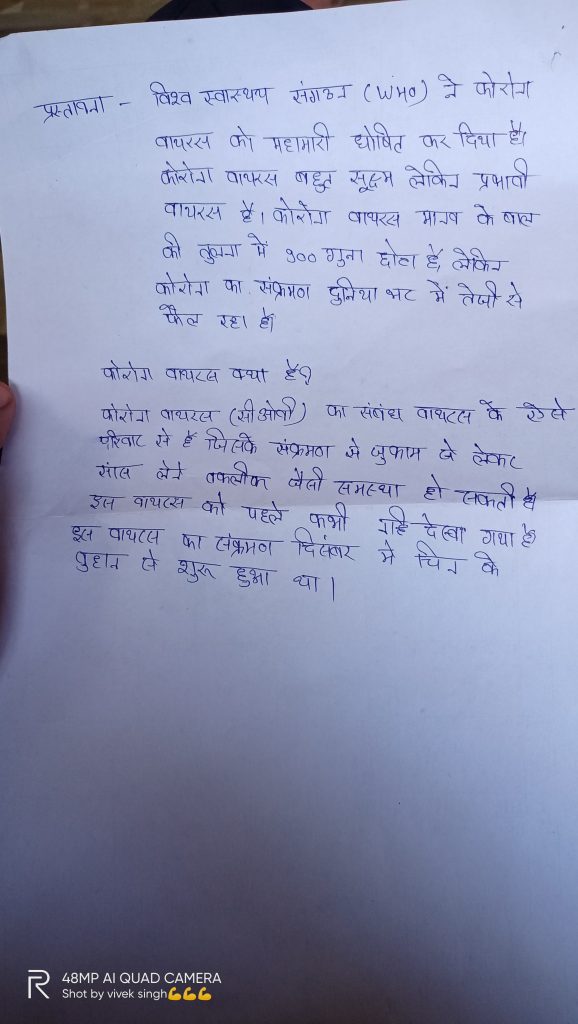 प्रस्तावना - विश्व स्वास्थय संगठन (WHO) ने कोरोना
वायरस को महामारी घोषित कर दिया है।
कोरोना वायरस बहुत सूक्ष्म लेकिन प्रभावी
वायरस है। कोरोना वायरस मानव के बाल
की तुलना में 900 गुना छोटा है, लेकिन
कोरोना का संक्रमण दुनिया भर में तेजी से
फैल रहा है।
कोरोना वायरस क्या है?
कोरोना वायरस (सीओवी) का संबंध वायरस के ऐसे
परिवार से है जिसके संक्रमण से जुकाम से लेकर
सांस लेने तकलीफ जैसी समस्या हो सकती है
इस वायरस को पहले कभी नहि देखा गया है
इस वायरस का संक्रमण दिसंबर मे चिन के
वुहान से शुरू हुआ था।
48MP AI QUAD CAMERA
Shot by vivek singh💪💪💪